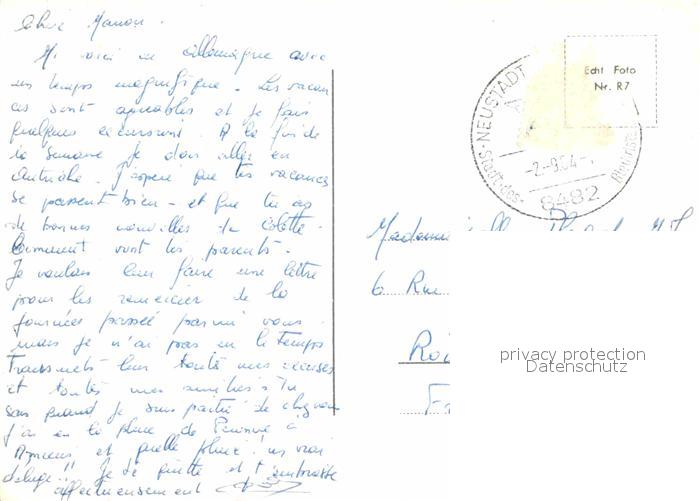 Chère Manon.
Me voici en Allemagne avec
un temps magnifique. Les vacan
ces sont agréables et je fais
quelques excursions. A la fin de
la semaine je dois aller en
Autriche. J'espère que tes vacances
se passent bien - et que tu as
de bonnes nouvelles de Colette.
Comment vont tes parents.
Je voulais leur faire une lettre
pour les remercier de la
journée passée parmi vous
mais je n'ai pas eu le temps
Transmets leur toutes mes excuses
et toutes mes amitiés. Tu
sais quand je suis partie de chez vous
j'ai eu la pluie de Peronne à
Amiens et quelle pluie! un vrai
deluge!! Je te quitte et t'embrasse
affectueusement
Echt Foto
Nr. R7
NEUSTADT
-2.-9.64-
8482
Stadt-des-
Mademoiselle
6 Rue
privacy protection
Datenschutz